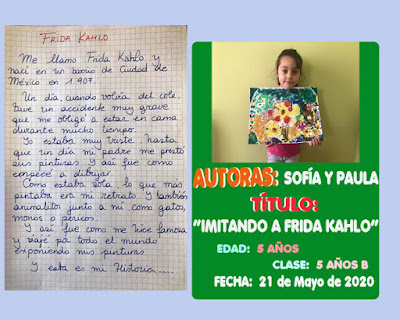 FRIDA KAHLO
Me llamo Frida Kahlo y
nací en un barrio de Ciudad de
México en 1.907.
Un día, cuando volvía del cole,
tuve un accidente muy grave
que me obligó a estar en cama
durante mucho tiempo.
Yo estaba muy triste, hasta
que un día mi padre me prestó
sus pinturas. Y así fue como
empecé a dibujar.
Como estaba sola, lo que más
pintaba era mi retrato. Y también
animalitos junto a mí como gatos,
monos o pericos.
Y así fue como me hice famosa
y viajé por todo el mundo
exponiendo mis pinturas.
Y esta es mi Historia....
AUTORAS: SOFÍA Y PAULA
TÍTULO:
"IMITANDO A FRIDA KAHLO"
EDAD: 5 AÑOS
CLASE: 5 AÑOS B
FECHA: 21 de Mayo de 2020